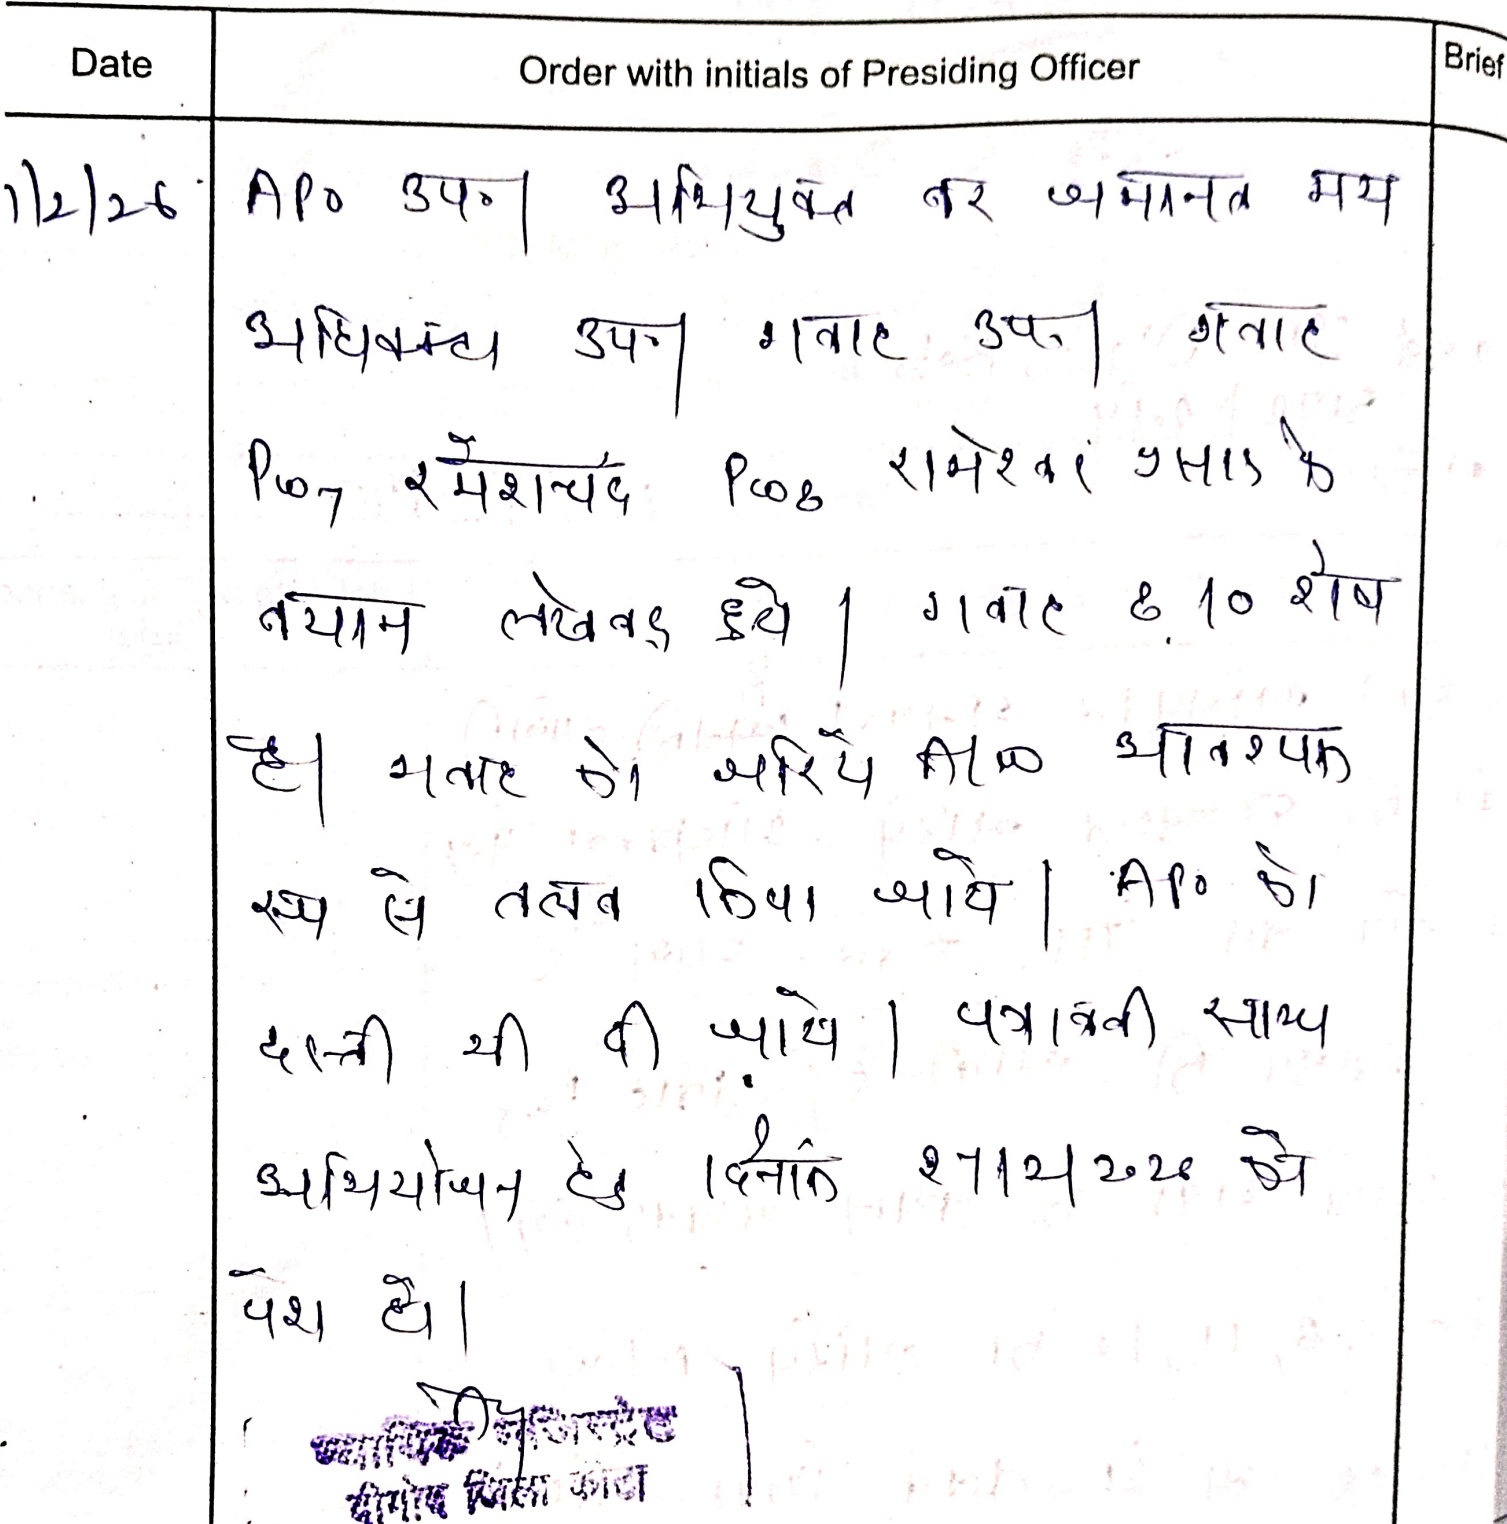 Date Order with initials of Presiding Officer Brief
1/2/26 APO उप०। अभियुक्त बर जमानत मय
अधिवक्ता उप०। गवाह उप०। गवाह
PW7 रमेशचंद PW8 रामेश्वर प्रसाद के
बयान लेखबद्ध हुये। गवाह 8, 10 शेष
है। गवाह को जरिये आवश्यक
रूप से तलब किया जावे। APO को
दस्ती भी दी जावे। पत्रावली साक्ष्य
अभियोजन हेतु दिनांक को
पेश हो।
न्यायिक मजिस्ट्रेट
दीगोद जिला कोटा